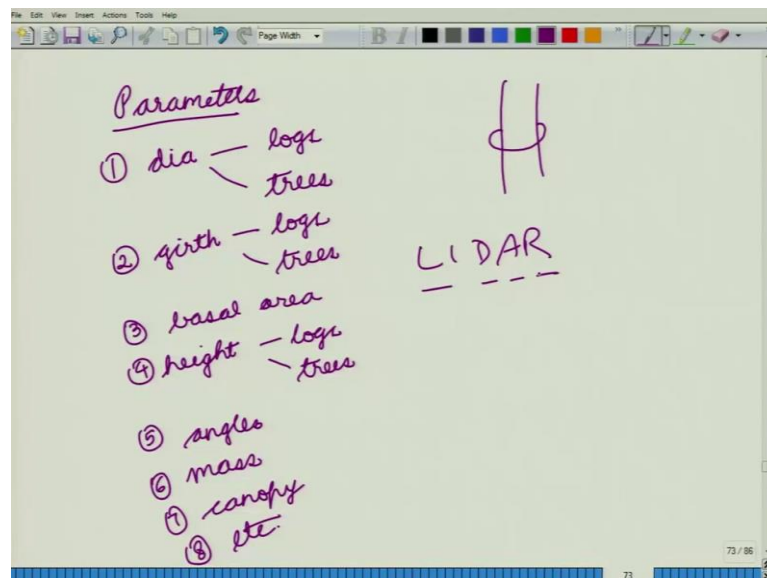 File Edit View Insert Actions Tools Help
Page Width
B I
Parameters
① dia — logs
trees
② girth — logs
trees
③ basal area
④ height — logs
trees
⑤ angles
⑥ mass
⑦ canopy
⑧ etc.
LIDAR
73 / 86
73